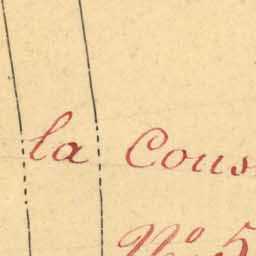 la Cous
No. 5